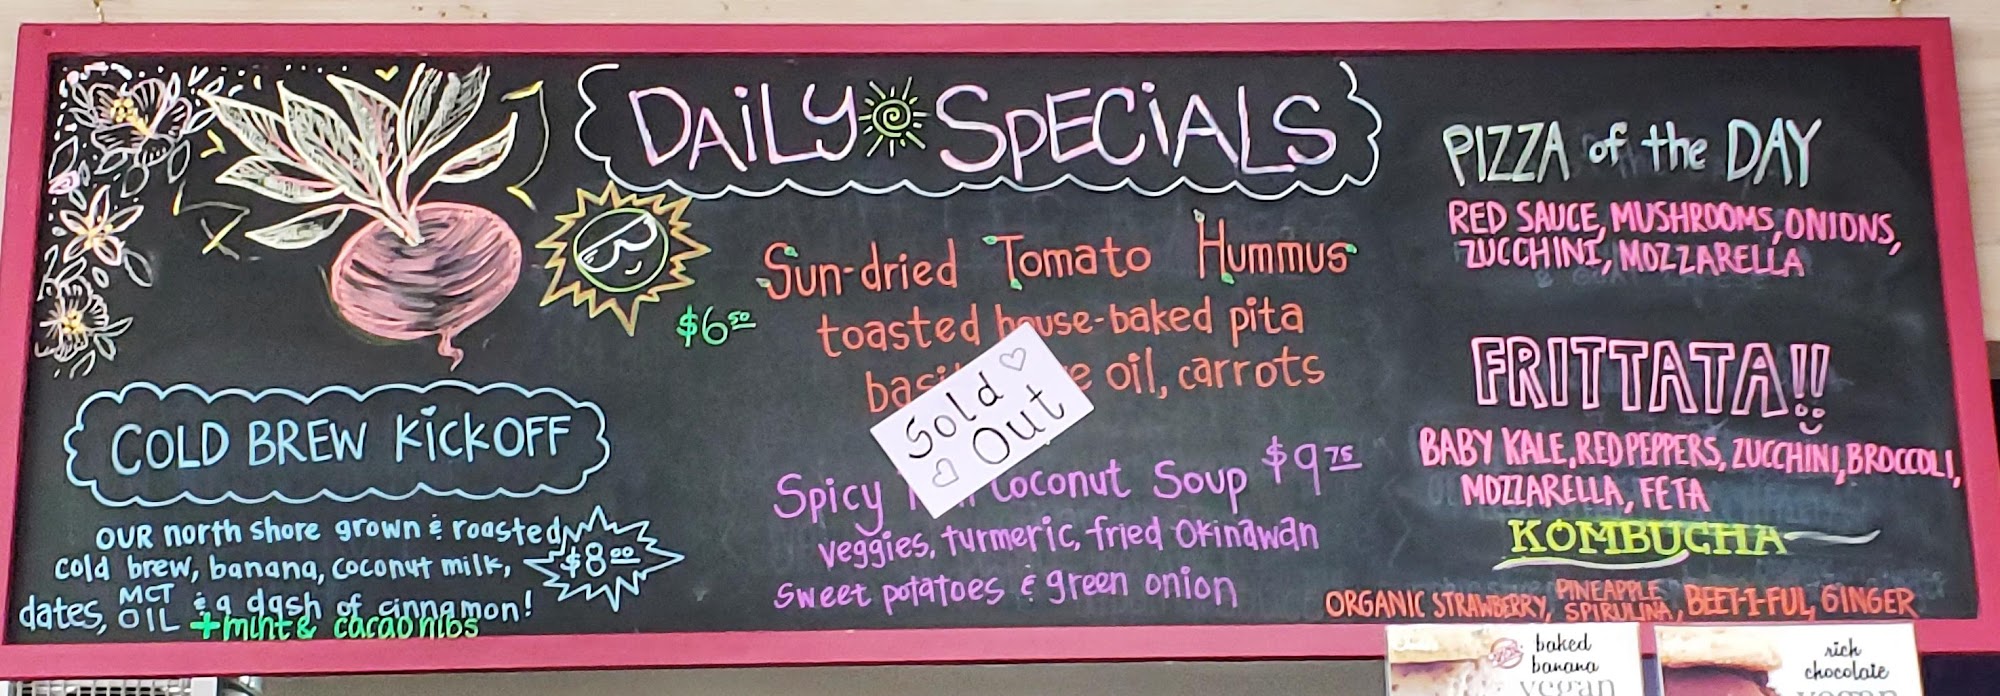 DAILY SPECIALS
COLD BREW KICKOFF
OUR north shore grown & roasted
cold brew, banana, coconut milk,
dates, MCT OIL & a dash of cinnamon!
+ mint & cacao nibs
$8.00
Sun-dried Tomato Hummus
$6.50
toasted house-baked pita
oil, carrots
Sold
Out
Spicy Coconut Soup $9.75
veggies, turmeric, fried Okinawan
sweet potatoes & green onion
PIZZA of the DAY
RED SAUCE, MUSHROOMS, ONIONS,
ZUCCHINI, MOZZARELLA
FRITTATA!!
BABY KALE, RED PEPPERS, ZUCCHINI, BROCCOLI,
MOZZARELLA, FETA
KOMBUCHA
ORGANIC STRAWBERRY, PINEAPPLE SPIRULINA, BEET-I-FUL, GINGER
baked
banana
vegan
rich
chocolate
vegan